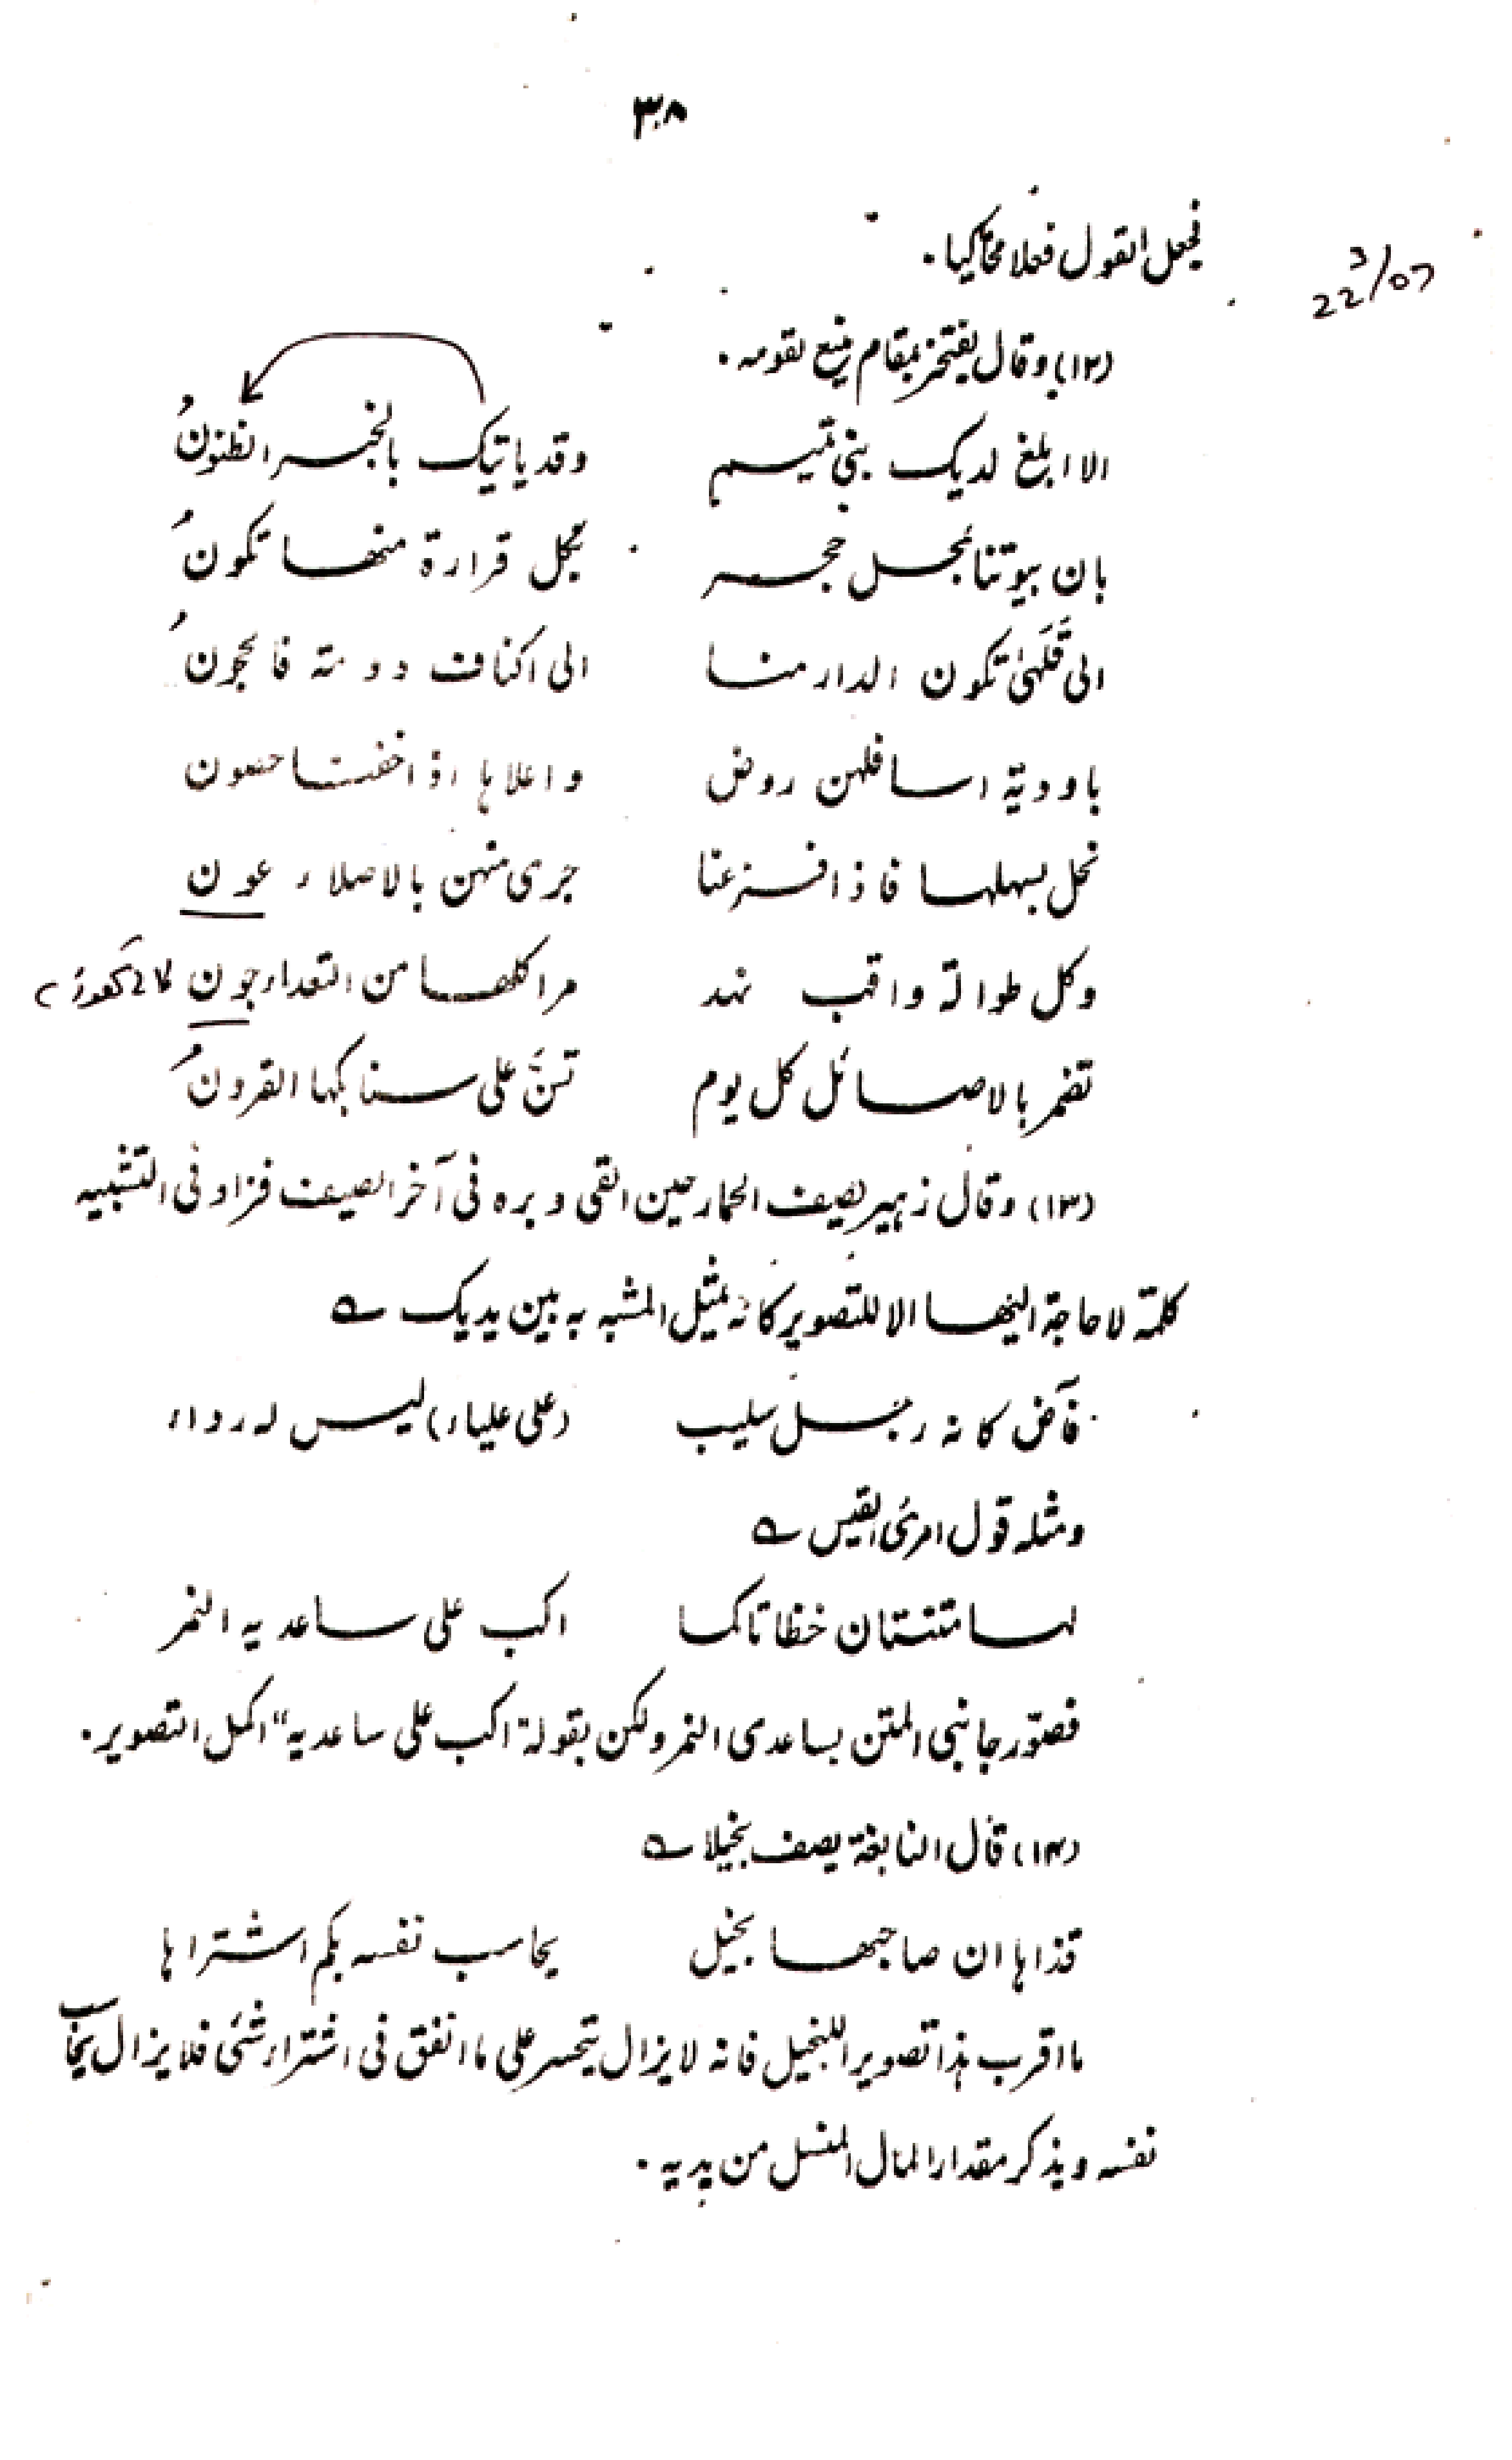 ٣٨
فیجعل القول فعلا محاکیا ۰
22/3/07
(۱۲) وقال یفتخر بمقام منیع لقومه ۰
الا ابلغ لدیک بنی تمیم وقد یاتیک بالخبر الظنونُ
بان بیوتنا بمحل حجر بکل قرارة منھا تکونُ
الی قَلَهَیٰ تکون الدار منا الی اکناف دومة فالحجونُ
باودیة اسافلهن روض واعلاها اذا خفنا حصون
نحل بسهلها فاذا فزعنا جری منهن بالاصلاء عون
وکل طوالة واقب نهد مراکلھا من التعداء جون
تضمر بالاصائل کل یوم تسنَّ علی سنابکها القرونُ
(۱۳) وقال زهیر یصیف الحمار حین القی وبره فی آخر الصیف فزاد فی التشبیه
کلمة لا حاجة الیھا الا للتصویر کانه یمثیل المشبه به بین یدیک ؎
فآض کانه رجل سلیب (علی علیاء) لیس له رداء
ومثله قول امرئ القیس ؎
لها متنتان خظاتا کما اکب علی ساعدیه النمر
فصوّر جانبی المتن بساعدی النمر ولکن بقوله "اکب علی ساعدیه" اکمل التصویر ۰
(۱۴) قال النابغة یصف بخیلا ؎
قذاها ان صاحبھا بخیل یحاسب نفسه بکم اشتراها
ما اقرب هذا تصویرا للبخیل فانه لا یزال یتحسر علی ما انفق فی اشتراء شئی فلا یزال یحاسب
نفسه ویذکر مقدار المال المنسل من یدیه ۰